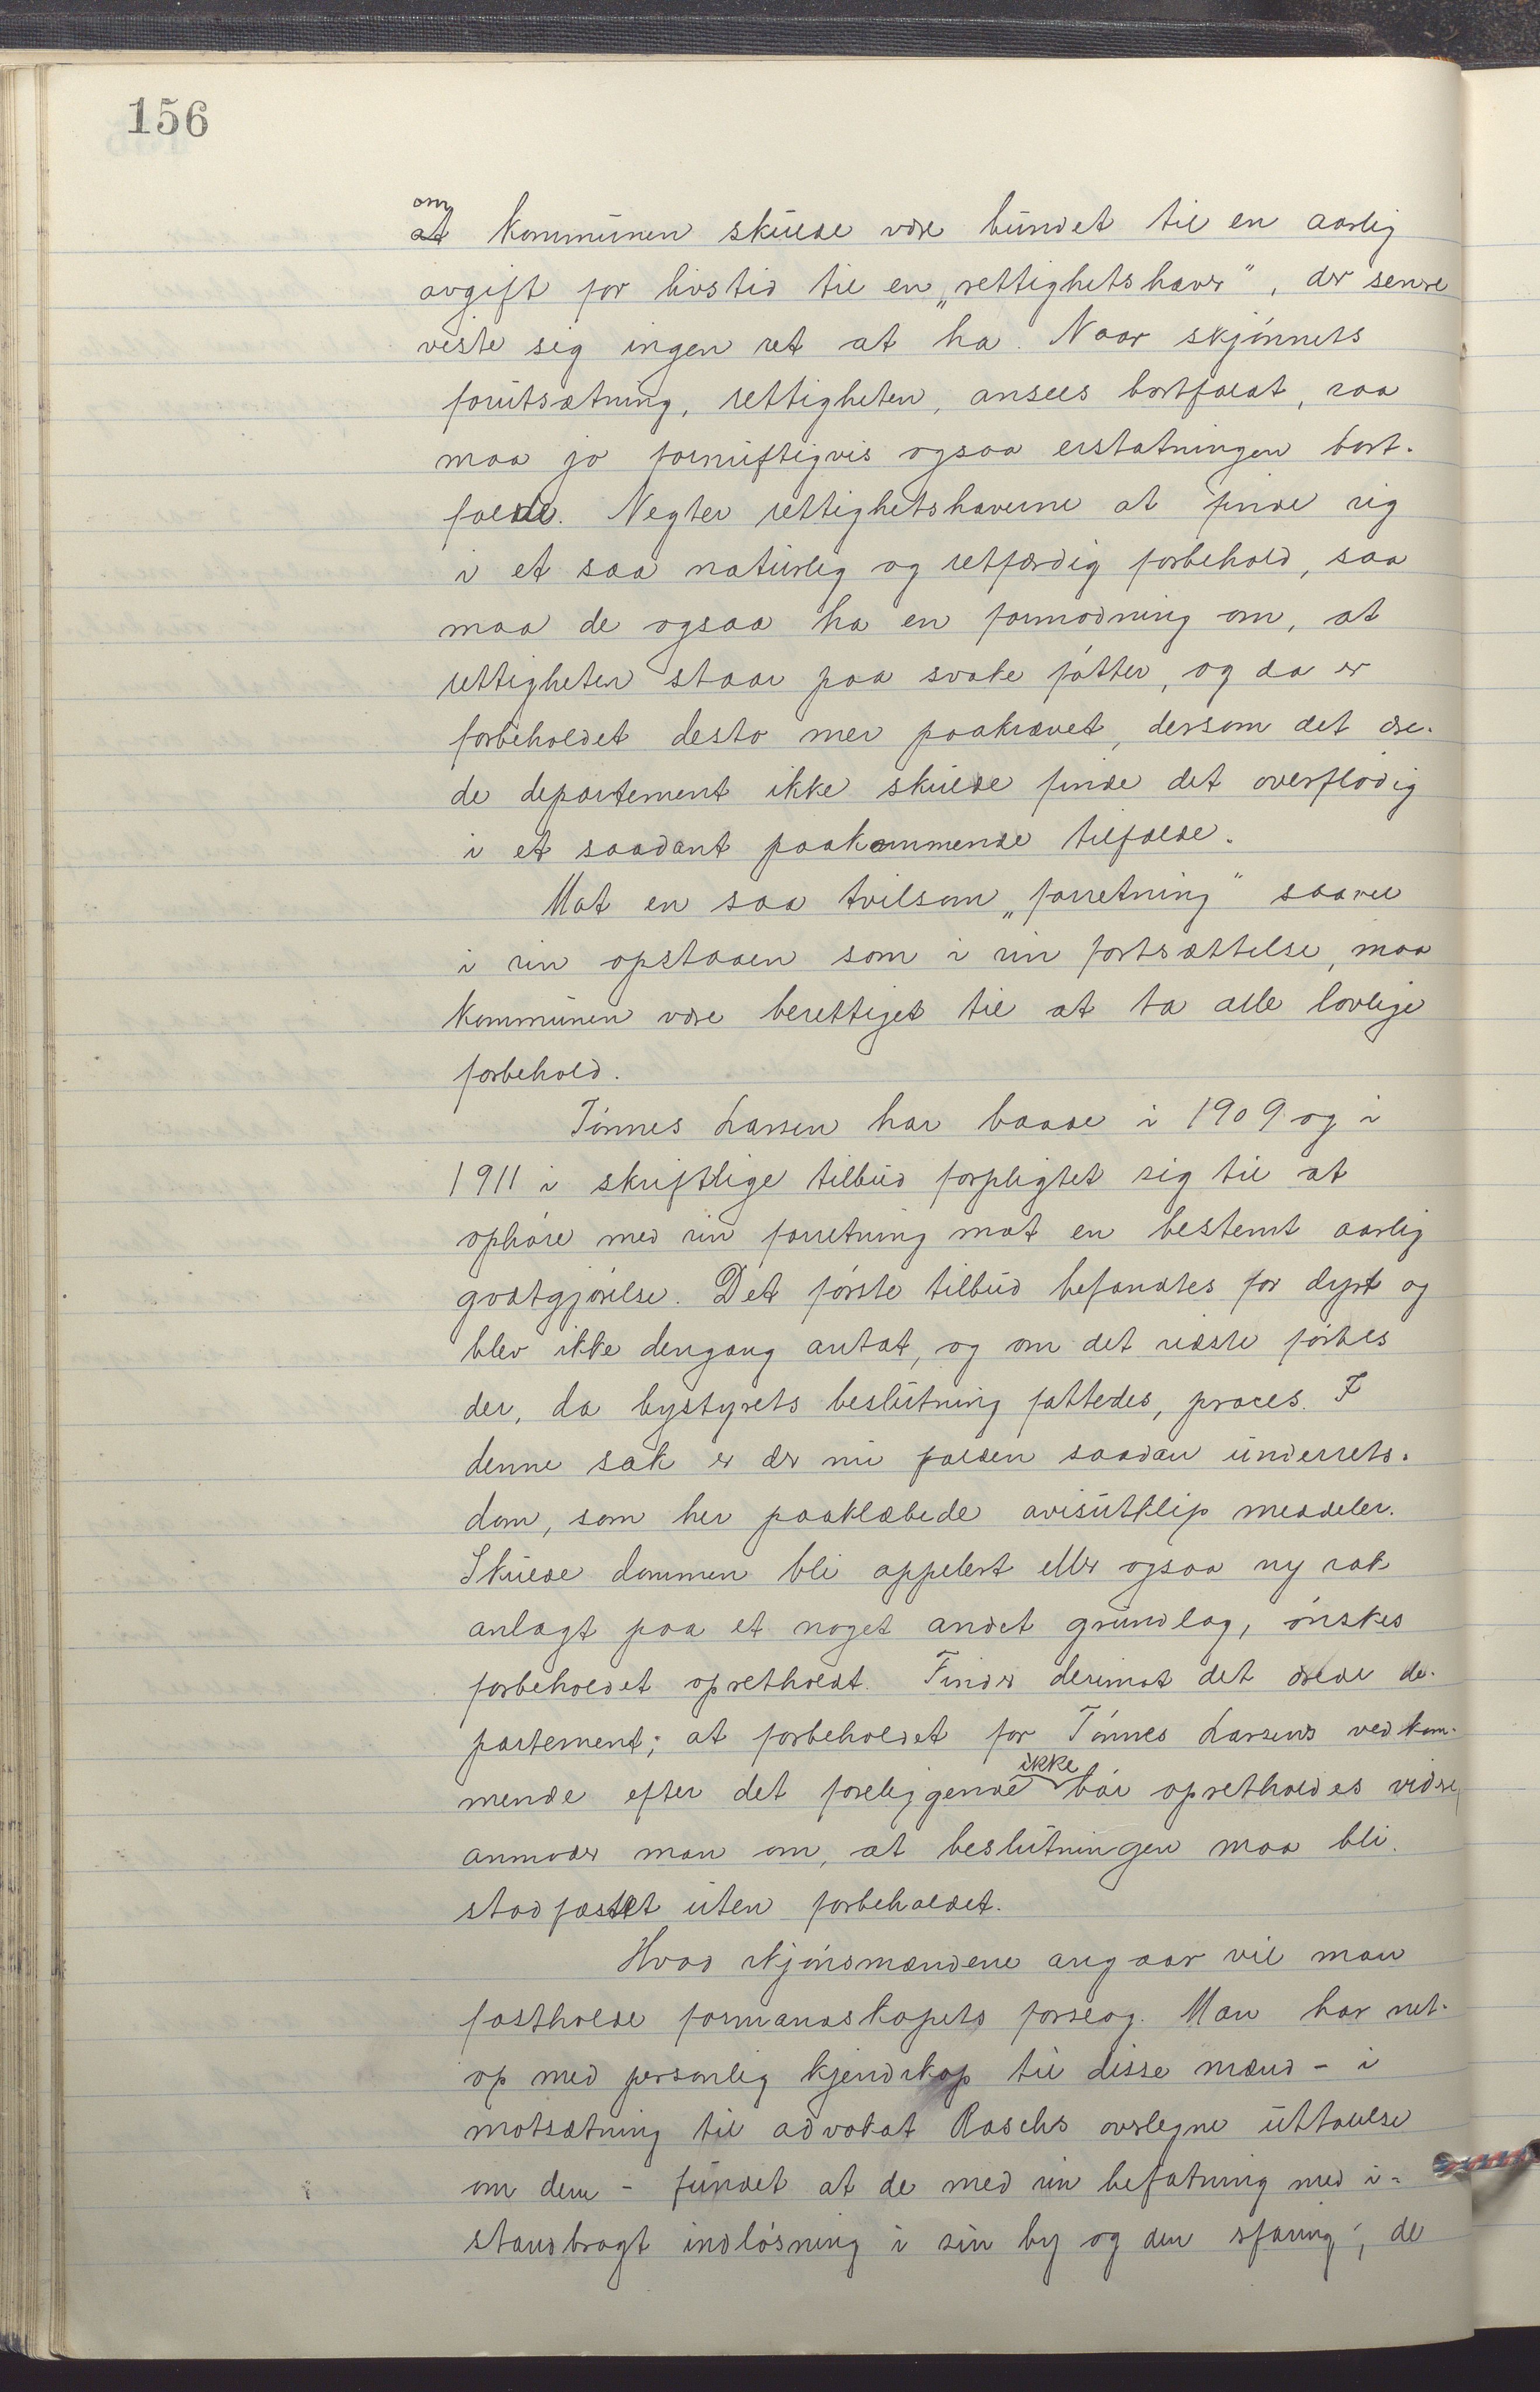 156
om
at kommunen skulde være bundet til en aarlig
avgift for livstid til en „rettighetshaver", der senere
viste sig ingen ret at ha. Naar skjønnets
forutsætning, rettigheten, ansees bortfaldt, saa
maa jo fornuftigvis ogsaa erstatningen bort-
falde. Negter rettighetshaverne at finde sig
i et saa naturlig og retfærdig forbehold, saa
maa de ogsaa ha en formodning om, at
rettigheten staar paa svake føtter, og da er
forbeholdet desto mer paakrævet, dersom det ære-
de departement ikke skulde finde det overflødig
i et saadant paakommende tilfælde.
Mot en saa tvilsom „forretning" saavel
i sin opstaaen som i sin fortsættelse, maa
kommunen være berettiget til at ta alle lovlige
forbehold.
Tønnes Larsen har baade i 1909 og i
1911 i skriftlige tilbud forpligtet sig til at
ophøre med sin forretning mot en bestemt aarlig
godtgjørelse. Det første tilbud befandtes for dyrt og
blev ikke dengang antat, og om det næste førtes
der, da bystyrets beslutning fattedes, proces. I
denne sak er der nu falden saadan underrets-
dom, som her paaklæbede avisutklip meddeler.
Skulde dommen bli appelert eller ogsaa ny sak
anlagt paa et noget andet grundlag, ønskes
forbeholdet opretholdt. Finder derimot det ærede de-
partement; at forbeholdet for Tønnes Larsens vedkom-
ikke
mende efter det foreliggende bør opretholdes videre,
anmoder man om, at beslutningen maa bli
stadfæstet uten forbeholdet.
Hvad skjønsmændene angaar vil man
fastholde formandskapets forslag. Man har net-
op med personlig kjendskap til disse mænd - i
motsætning til advokat Raschs overlegne uttalelse
om dem - fundet at de med sin befatning med i-
standbragt indløsning i sin by og den erfaring, de